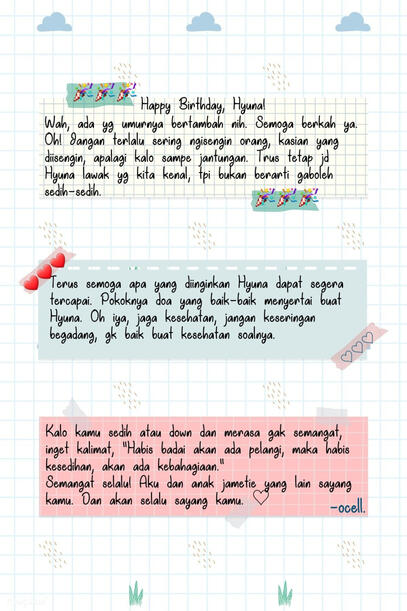 Happy Birthday, Hyuna!
Wah, ada yg umurnya bertambah nih. Semoga berkah ya.
Oh! Jangan terlalu sering ngisengin orang, kasian yang
diisengin, apalagi kalo sampe jantungan. Trus tetap jd
Hyuna lawak yg kita kenal, tpi bukan berarti gaboleh
sedih-sedih.
Terus semoga apa yang diinginkan Hyuna dapat segera
tercapai. Pokoknya doa yang baik-baik menyertai buat
Hyuna. Oh iya, jaga kesehatan, jangan keseringan
begadang, gk baik buat kesehatan soalnya.
Kalo kamu sedih atau down dan merasa gak semangat,
inget kalimat, "Habis badai akan ada pelangi, maka habis
kesedihan, akan ada kebahagiaan."
Semangat selalu! Aku dan anak jametie yang lain sayang
kamu. Dan akan selalu sayang kamu. ♡
-ocell.